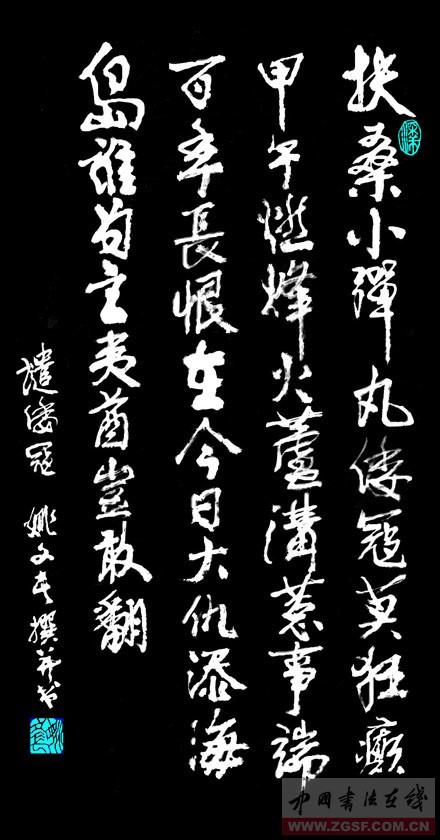 扶桑小彈丸倭寇莫狂癲
甲午燃烽火蘆溝惹事端
百年長恨在今日大仇添海
島誰為主夷酋豈敢翻
譴倭寇 姚文撰并书
中国书法在线
WWW.ZGSF.COM.CN